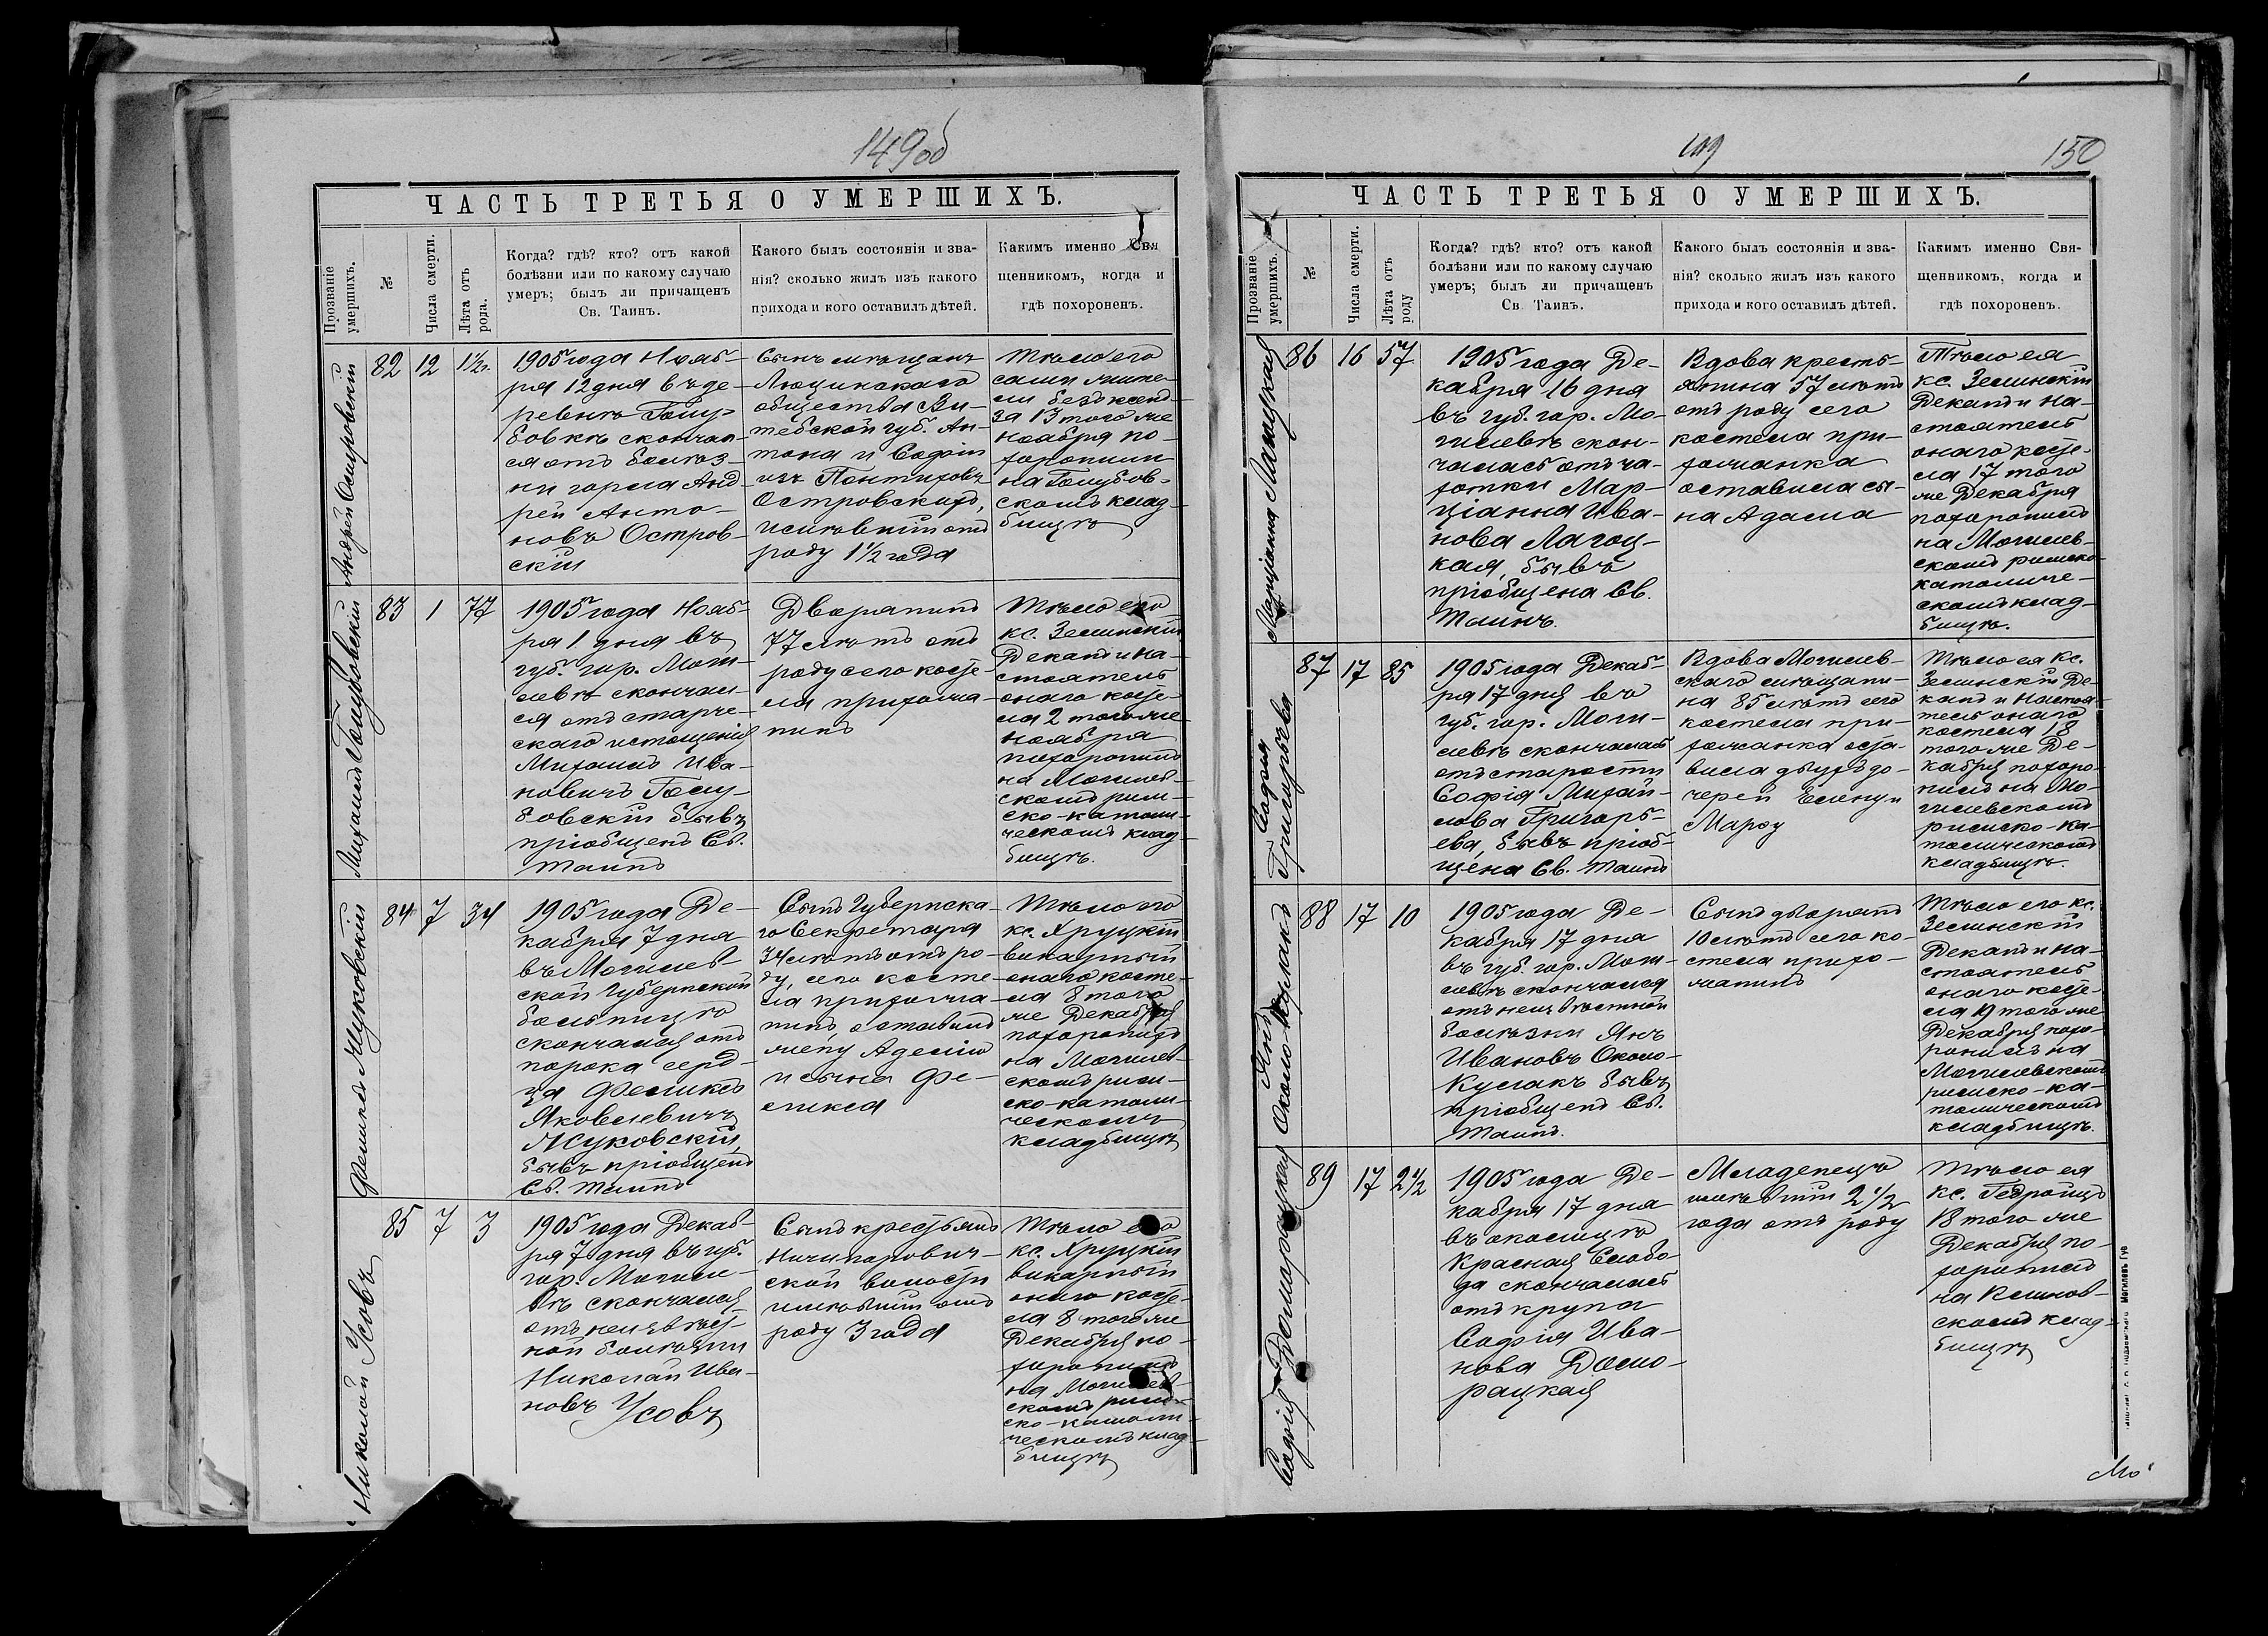 149об
ЧАСТЬ ТРЕТЬЯ О УМЕРШИХЪ.
Прозваніе
умершихъ.
№
Числа смерти.
Лѣта отъ
рода.
Когда? гдѣ? кто? отъ какой
болѣзни или по какому случаю
умеръ; былъ ли причащенъ
Св. Таинъ.
Какого былъ состоянія и зва-
нія? сколько жилъ изъ какого
прихода и кого оставилъ дѣтей.
Какимъ именно Свя
щенникомъ, когда и
гдѣ похороненъ.
Андрей Островскій
82
12
1½г.
1905 года Нояб-
ря 12 дня въ де-
ревнѣ Голу-
бовкѣ скончал-
ся отъ болѣз-
ни горла Анд-
рей Анто-
новъ Остров-
скій
Сынъ мѣщанъ
Люцинскаго
общества Ви-
тебской губ. Ан-
тона и Софіи
изъ
Островскихъ,
имѣвшій отъ
роду 1½ года
Тѣло его
сами жите-
ли безъ ксенд-
за 13 того же
ноября по-
хоронили
на Голубов-
скомъ клад-
бищѣ
Михаилъ Голубовскій
83
1
77
1905 года Нояб-
ря 1 дня въ
губ. гор. Моги-
левѣ скончал-
ся отъ старче-
скаго истощенія
Михаилъ Ива-
новичъ Голу-
бовскій бывъ
пріобщенъ Св.
Таинъ
Дворянинъ
77 лѣтъ отъ
роду сего косте-
ла прихожа-
нинъ
Тѣло его
кс. Зелинскій
Деканъ и на-
стоятель
онаго косте-
ла 2 того же
ноября
похоронилъ
на Могилев-
скомъ рим-
ско-католи-
ческомъ клад-
бищѣ.
Феликсъ Жуковскій
84
7
34
1905 года Де-
кабря 7 дня
въ Могилев-
ской Губернской
больницѣ
скончался отъ
порока серд-
ца Феликсъ
Яковлевичъ
Жуковскій,
бывъ пріобщенъ
Св. Таинъ
Сынъ Губернска-
го Секретаря
34 лѣтъ отъ ро-
ду, сего косте-
ла прихожа-
нинъ, оставилъ
жену Аделію
и сына Фе-
ликса
Тѣло его
кс. Хруцкій
викарный
онаго косте-
ла 8 того
же Декабря
похоронилъ
на Могилев-
скомъ рим-
ско-католи-
ческомъ
кладбищѣ
Николай Усовъ
85
7
3
1905 года Декаб-
ря 7 дня въ губ.
гор. Могиле-
вѣ скончался
отъ неизвѣст-
ной болѣзни
Николай Ива-
новъ Усовъ
Сынъ крестьянъ
Ничипорович-
ской волости
имѣвшій отъ
роду 3 года
Тѣло его
кс. Хруцкій
викарный
онаго косте-
ла 8 того же
Декабря по-
хоронилъ
на Могилев-
скомъ рим-
ско-католи-
ческомъ клад-
бищѣ
149
150
ЧАСТЬ ТРЕТЬЯ О УМЕРШИХЪ.
Прозваніе
умершихъ.
№
Числа смерти.
Лѣта отъ
роду
Когда? гдѣ? кто? отъ какой
болѣзни или по какому случаю
умеръ; былъ ли причащенъ
Св. Таинъ.
Какого былъ состоянія и зва-
нія? сколько жилъ изъ какого
прихода и кого оставилъ дѣтей.
Какимъ именно Свя-
щенникомъ, когда и
гдѣ похороненъ.
Марціанна
86
16
57
1905 года Де-
кабря 16 дня
въ губ. гор. Мо-
гилевѣ скон-
чалась отъ ча-
хотки Мар-
ціанна Ива-
нова Лагоц-
кая, бывъ
пріобщена Св.
Таинъ.
Вдова кресть-
янина 57 лѣтъ
отъ роду сего
костела при-
хожанка
оставила сы-
на Адама
Тѣло ея
кс. Зелинскій
Деканъ и на-
стоятель
онаго косте-
ла 17 того
же Декабря
похоронилъ
на Могилев-
скомъ римско-
католиче-
скомъ клад-
бищѣ.
Софія
Григорьева
87
17
85
1905 года Декаб-
ря 17 дня въ
губ. гор. Моги-
левѣ скончалась
отъ старости
Софія Михай-
лова Григорь-
ева, бывъ пріоб-
щена Св. Таинъ
Вдова Могилев-
скаго мѣщани-
на 85 лѣтъ сего
костела при-
хожанка оста-
вила двухъ до-
черей Елену и
Марою
Тѣло ея кс.
Зелинскій Де-
канъ и настоя-
тель онаго
костела 18
того же Де-
кабря похоро-
нилъ на Мо-
гилевскомъ
римско-ка-
толическомъ
кладбищѣ.
Янъ
Около-Кулакъ
88
17
10
1905 года Де-
кабря 17 дня
въ губ. гор. Моги-
левѣ скончался
отъ неизвѣстной
болѣзни Янъ
Ивановъ Около-
Кулакъ бывъ
пріобщенъ Св.
Таинъ.
Сынъ дворянъ
10 лѣтъ сего ко-
стела прихо-
жанинъ
Тѣло его кс.
Зелинскій
Деканъ и на-
стоятель
онаго косте-
ла 19 того же
Декабря похо-
ронилъ на
Могилевскомъ
римско-ка-
толическомъ
кладбищѣ.
Софія Доморацкая
89
17
2½
1905 года Де-
кабря 17 дня
въ околицѣ
Красная Слобо-
да скончалась
отъ крупа
Софія Ива-
нова Домо-
рацкая
Младенецъ
имѣвшій 2½
года отъ роду
Тѣло ея
кс. Гедройцъ
18 того же
Декабря по-
хоронилъ
на Климов-
скомъ клад-
бищѣ
Могилевъ Губ